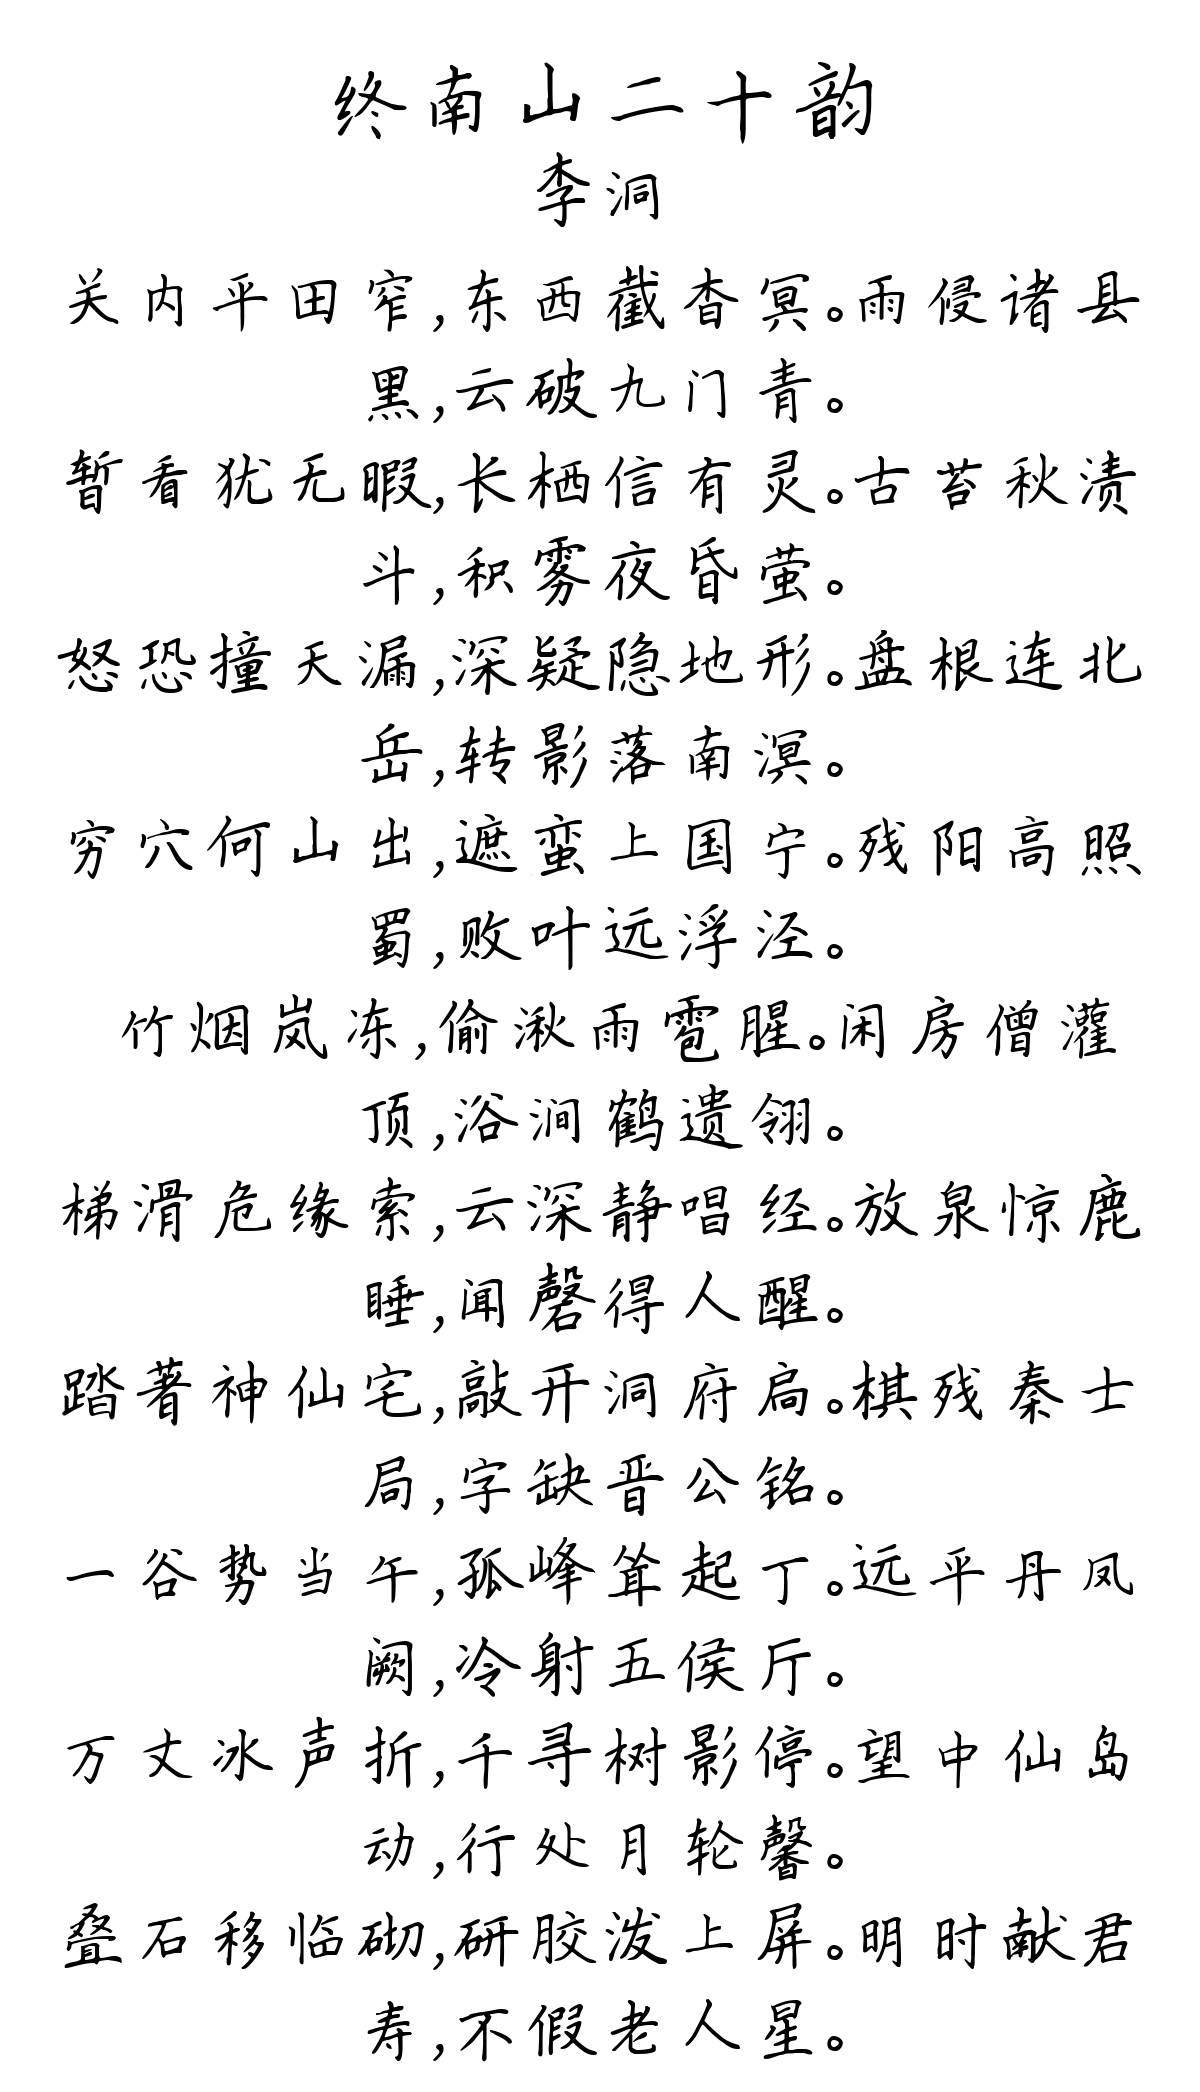 终南山二十韵
李洞
关内平田窄,东西截杳冥。雨侵诸县
黑,云破九门青。
暂看犹无暇,长栖信有灵。古苔秋渍
斗,积雾夜昏萤。
怒恐撞天漏,深疑隐地形。盘根连北
岳,转影落南溟。
穷穴何山出,遮蛮上国宁。残阳高照
蜀,败叶远浮泾。
竹烟岚冻,偷湫雨雹腥。闲房僧灌
顶,浴涧鹤遗翎。
梯滑危缘索,云深静唱经。放泉惊鹿
睡,闻磬得人醒。
踏著神仙宅,敲开洞府扃。棋残秦士
局,字缺晋公铭。
一谷势当午,孤峰耸起丁。远平丹凤
阙,冷射五侯厅。
万丈冰声折,千寻树影停。望中仙岛
动,行处月轮馨。
叠石移临砌,研胶泼上屏。明时献君
寿,不假老人星。